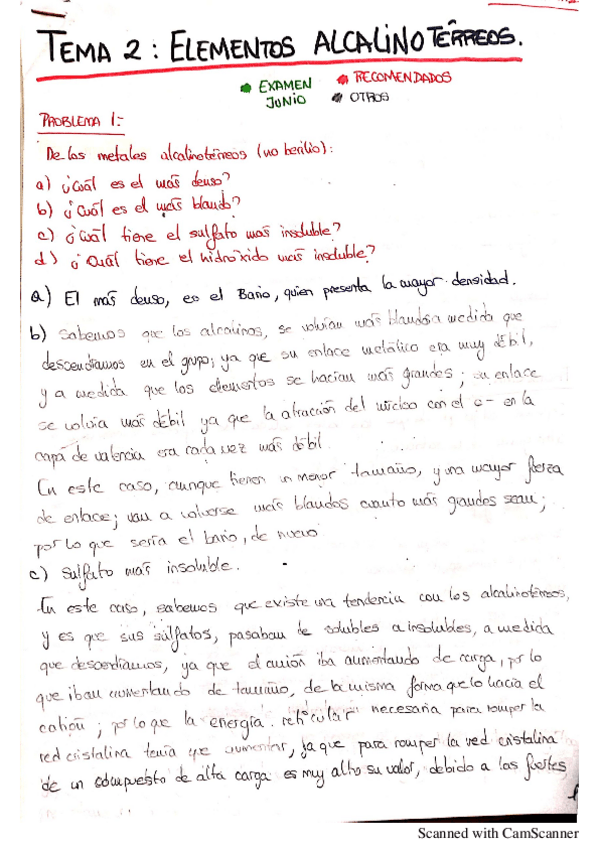 TEMA 2: ELEMENTOS ALCALINOTÉRREOS.
EXAMEN JUNIO
RECOMENDADOS
OTROS
PROBLEMA 1:-
De los metales alcalinotérreos (no berilio):
a) ¿Cuál es el más denso?
b) ¿Cuál es el más blando?
c) ¿Cuál tiene el sulfato más insoluble?
d) ¿Cuál tiene el hidróxido más insoluble?
a) El más denso, es el Bario, quien presenta la mayor densidad.
b) Sabemos que los alcalinos, se volvían más blandos a medida que
descendíamos en el grupo; ya que su enlace metálico era muy débil,
y a medida que los elementos se hacían más grandes; su enlace
se volvía más débil ya que la atracción del núcleo con el e- en la
capa de valencia era cada vez más débil.
En este caso, aunque tienen un menor tamaño, y una mayor fuerza
de enlace; van a volverse más blandos cuanto más grandes sean;
por lo que sería el bario, de nuevo
c) Sulfato más insoluble.
En este caso, sabemos que existe una tendencia con los alcalinotérreos,
y es que sus sulfatos, pasaban de solubles a insolubles, a medida
que descendíamos, ya que el anión iba aumentando de carga, por lo
que iban aumentando de tamaño, de la misma forma que lo hacía el
catión; por lo que la energía reticular necesaria para romper la
red cristalina tenía que aumentar, ya que para romper la red cristalina
de un compuesto de alta carga es muy alto su valor, debido a las fuertes
Scanned with CamScanner